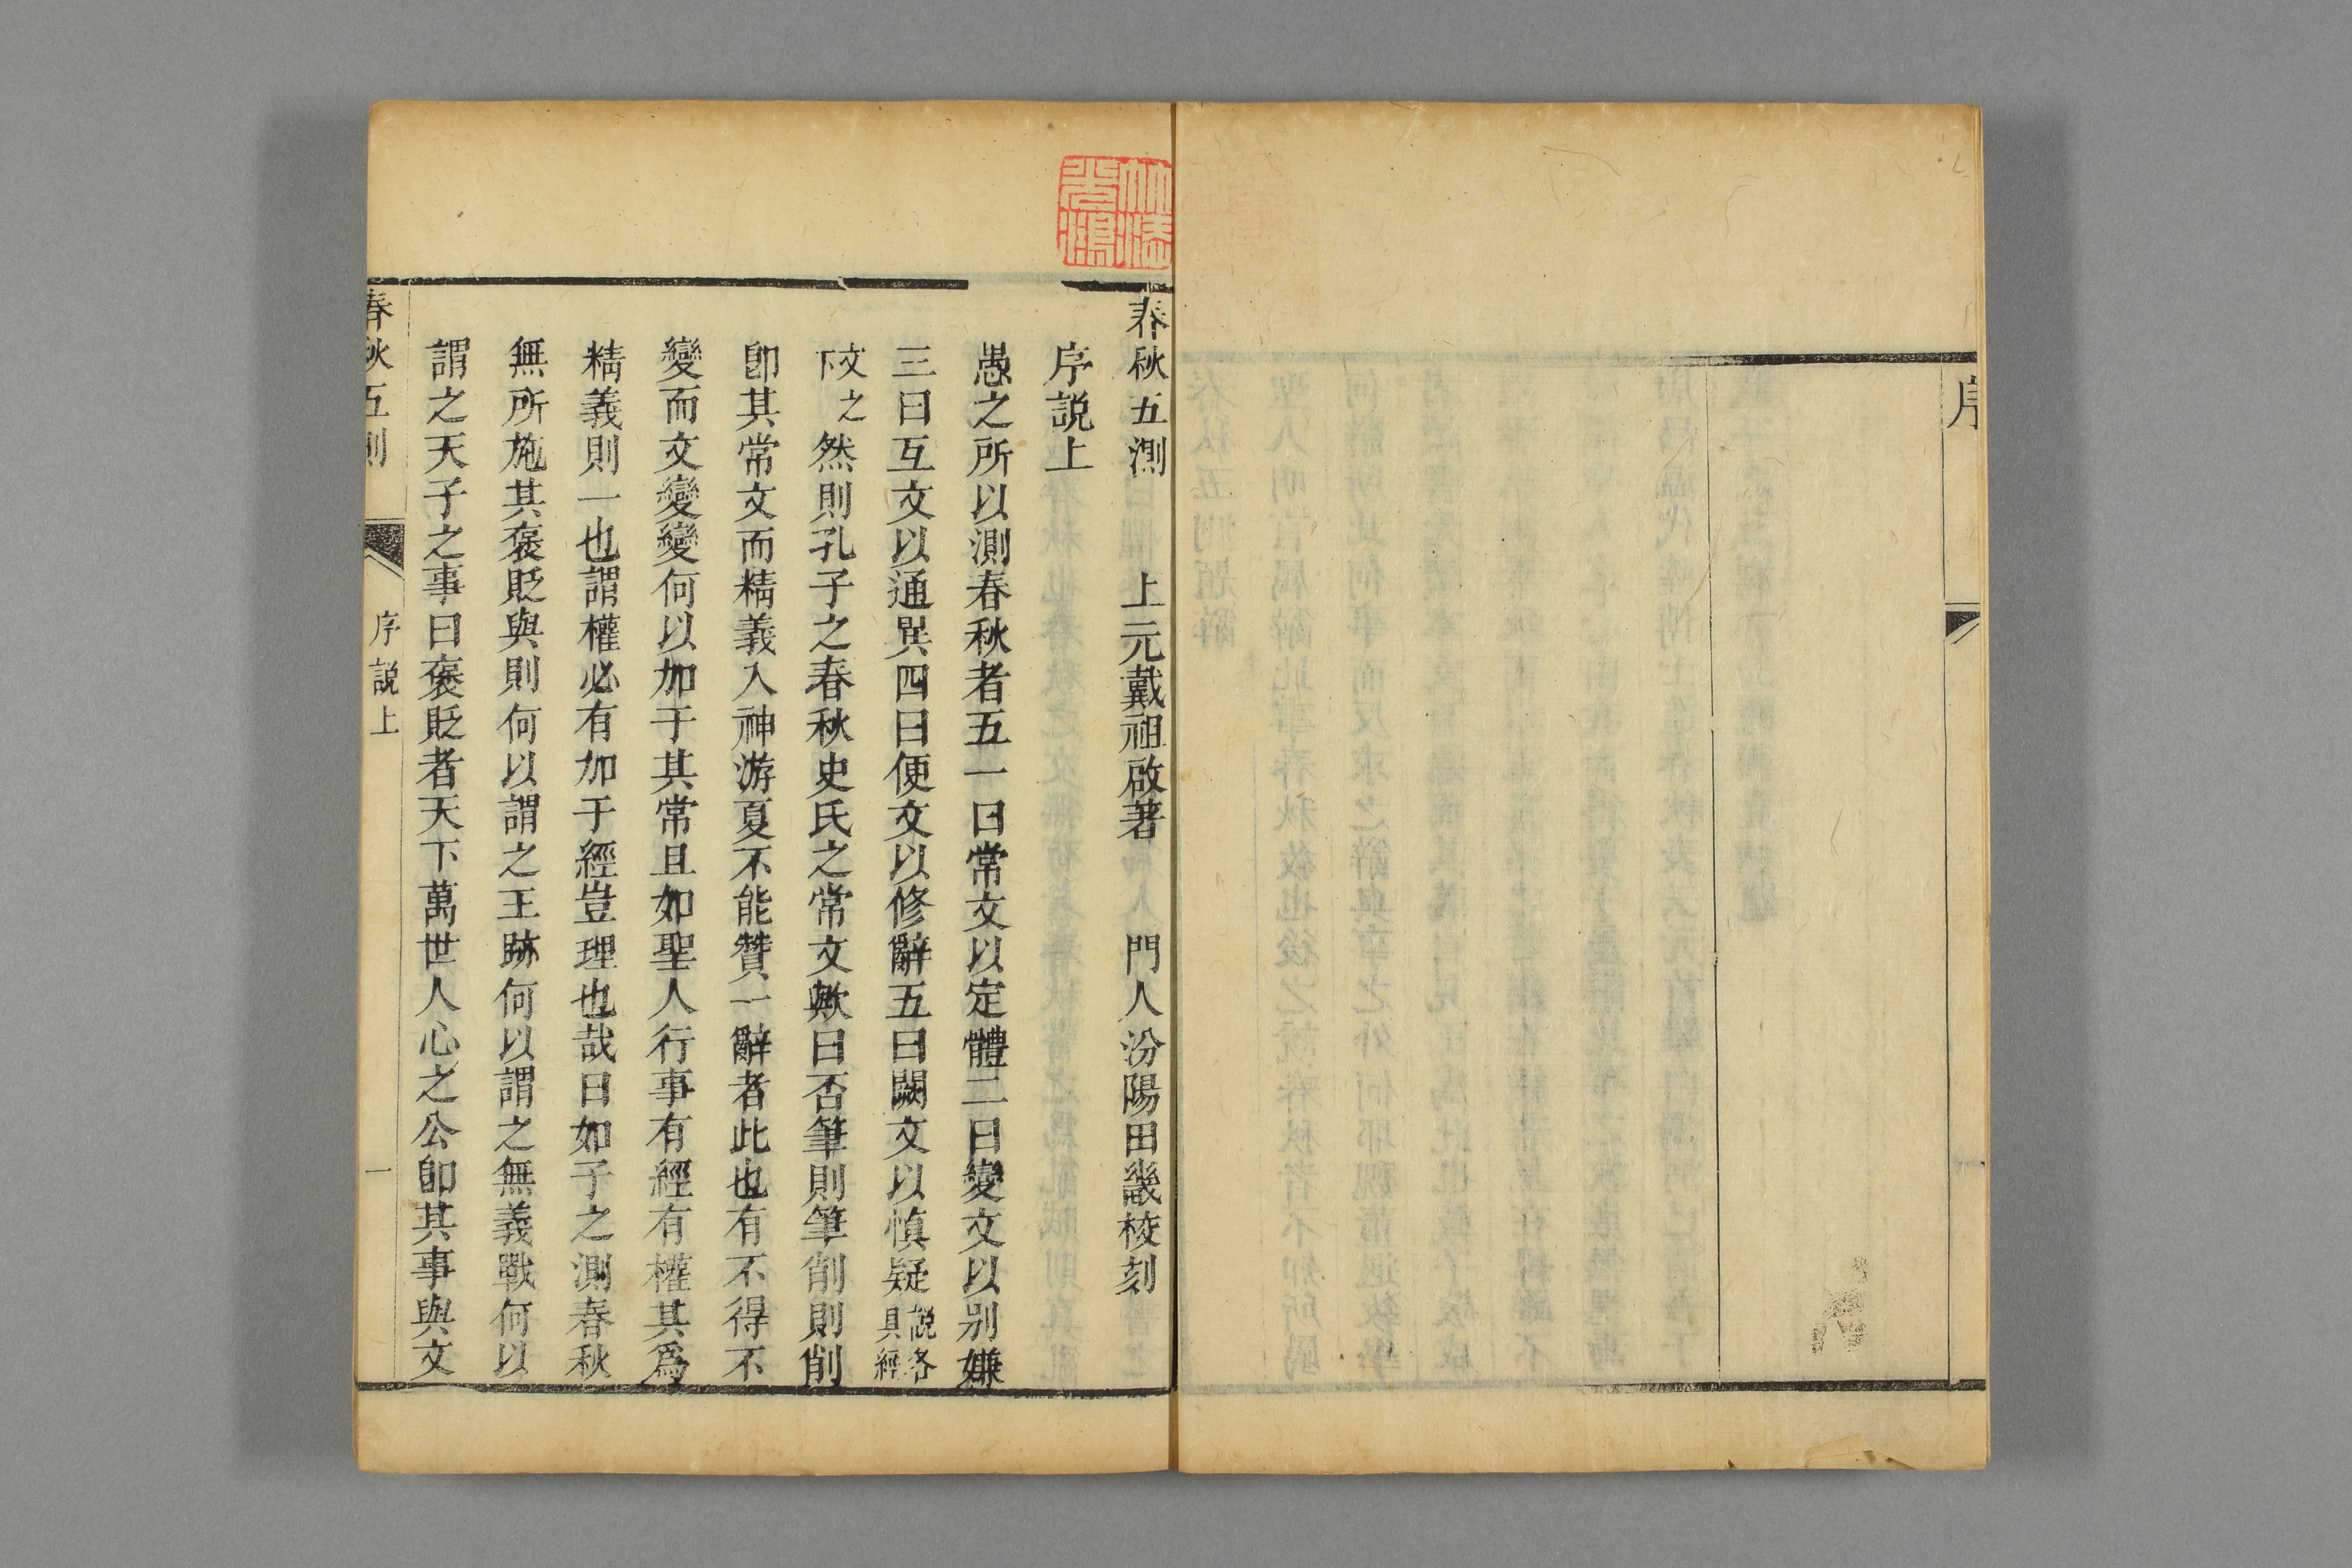 序
春秋五測　上元戴祖啟著　門人汾陽田畿校刻
序説上
愚之所以測春秋者五一曰常文以定體二曰變文以别嫌
三曰互文以通異四曰便文以修辭五曰闕文以慎疑説各具經
文之下然則孔子之春秋史氏之常文歟曰否筆則筆削則削
卽其常文而精義入神游夏不能贊一辭者此也有不得不
變而文變變何以加于其常且如聖人行事有經有權其爲
精義則一也謂權必有加于經豈理也哉曰如子之測春秋
無所施其褒貶與則何以謂之王跡何以謂之無義戰何以
謂之天子之事曰褒貶者天下萬世人心之公卽其事與文
春秋五測　序説上　一